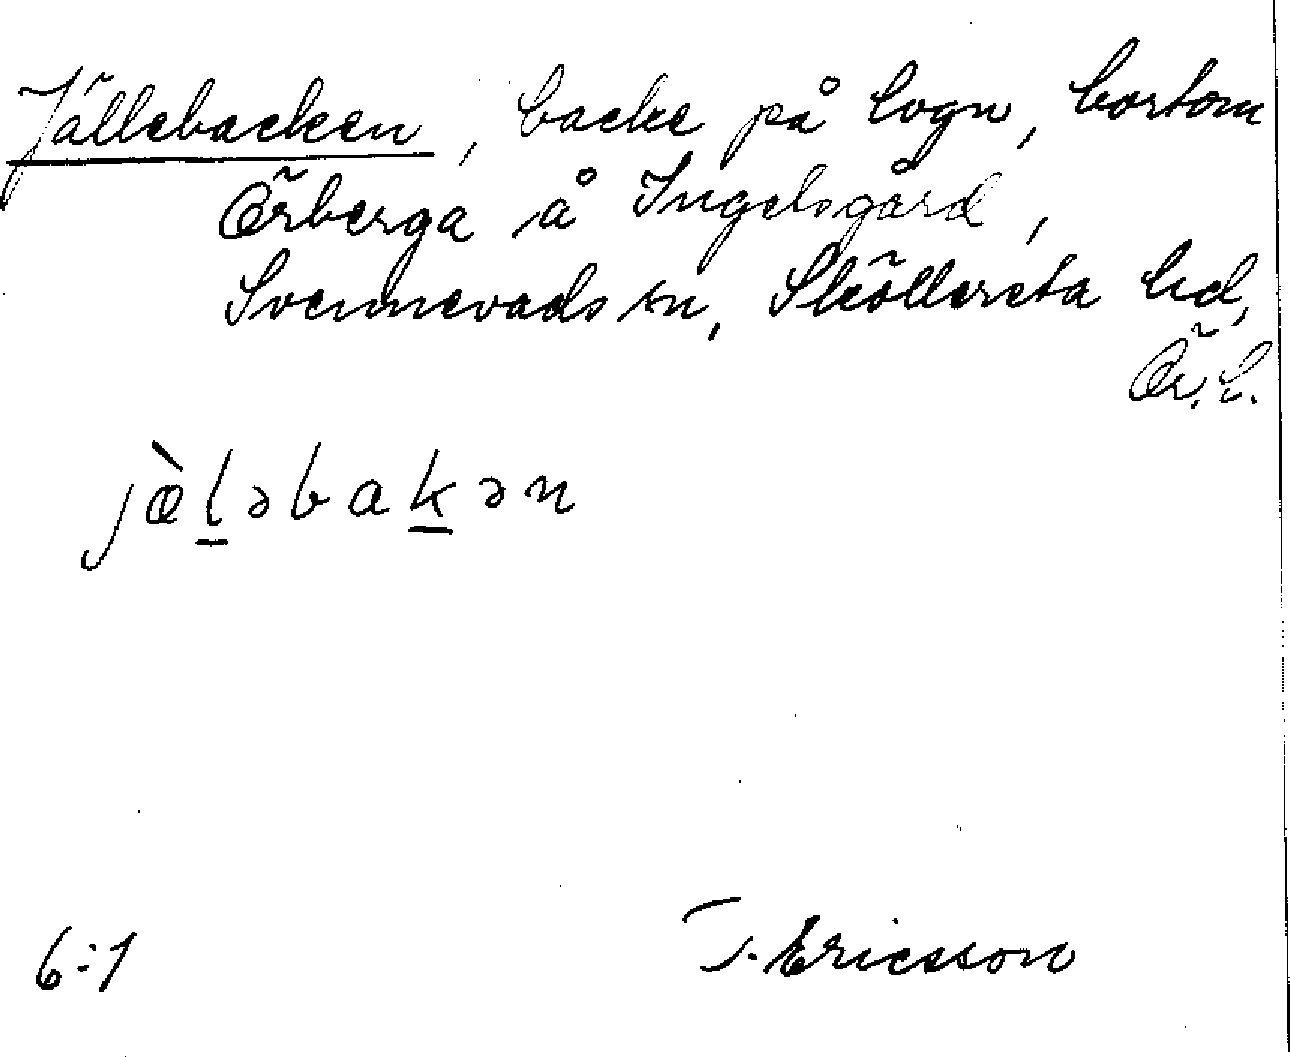 Jällebacken, backe på logn, bortom
Örberga å Ingelsgård,
Svennevads sn, Sköllersta hd,
Ör. l.
jæ̀l̲əbak̲ən
6:1
T. Ericsson